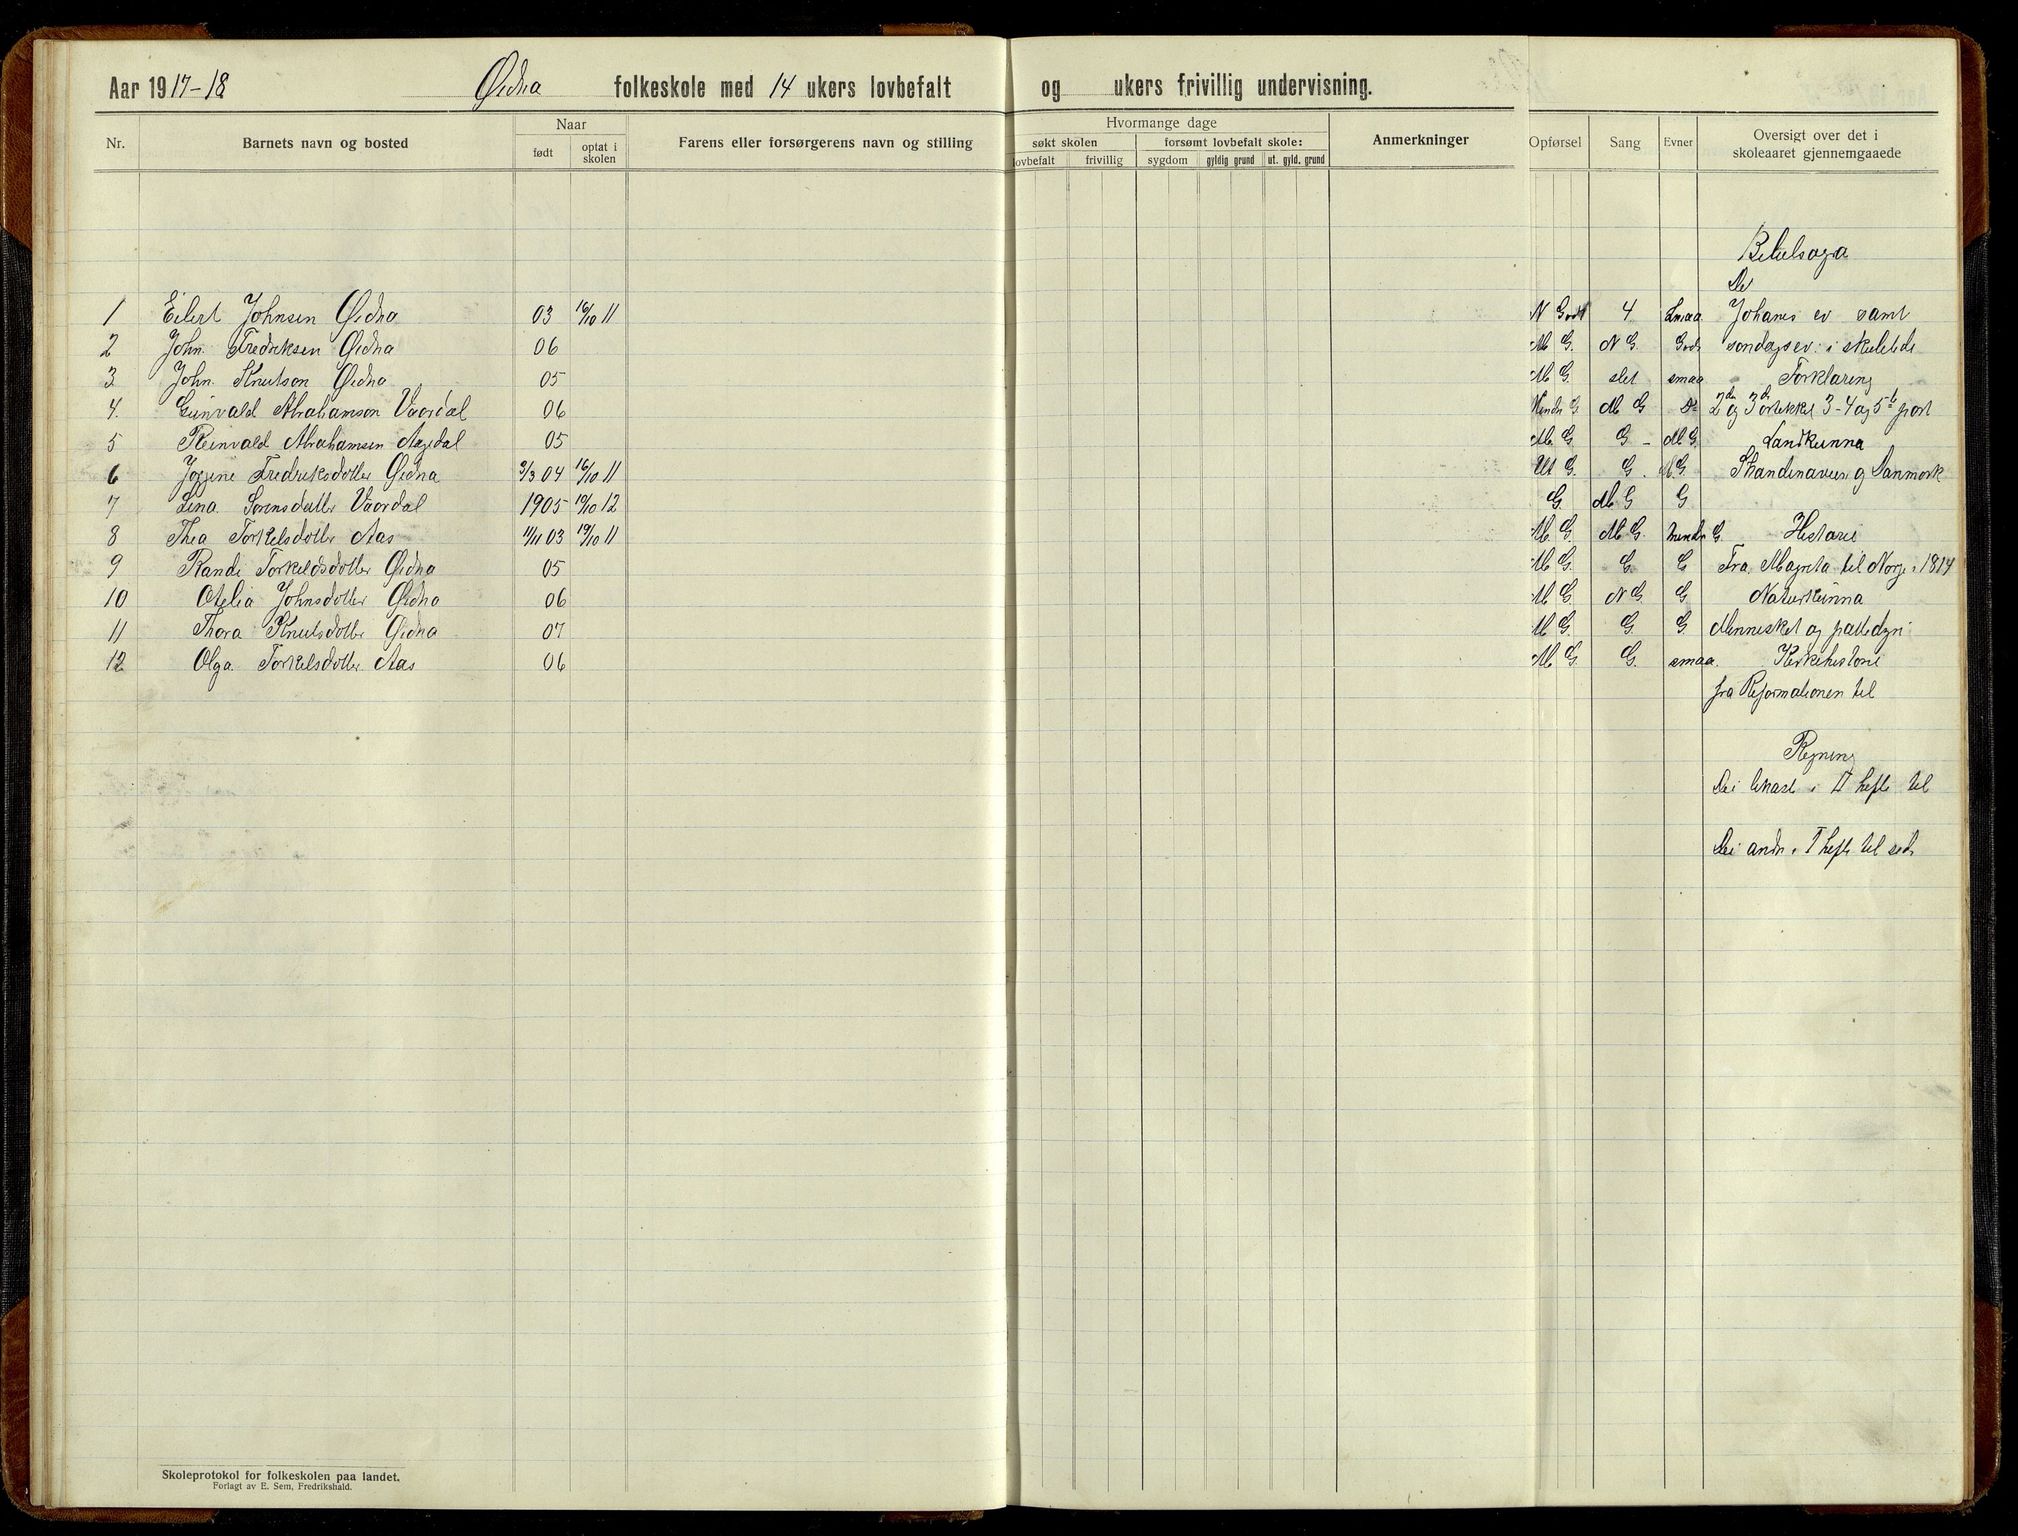 Aar 1917-18 Øidna folkeskole med 14 ukers lovbefalt og ukers frivillig undervisning.
Nr. Barnets navn og bosted Naar født optat i skolen Farens eller forsørgerens navn og stilling
Hvormange dage
søkt skolen lovbefalt frivillig forsømt lovbefalt skole: sygdom gyldig grund ut. gyld. grund Anmerkninger
Opførsel Sang Evner Oversigt over det i skoleaaret gjennemgaaede
Bibelsoga
De
1 Eilert Johnsen Øidna 03 16/10 11 N Godt 4 Smaa Johanes ev samt
2 John Fredriksen Øidna 06 M G. N G. Godt sondagsev. i skuletide
3 John Knutson Øidna 05 M G. slet smaa Forklaring
4. Gunvald Abrahamson Vaardal 06 Mindr G M G Do 2den og 3d ortikkel 3-4 og 5te part
5 Reinvald Abrahamsen Aagedal 05 M G G - M G Landkunna
6 Jorgine Fredriksdotter Øidna 3/3 04 16/10 11 Ut G. G. M. G. Skandinavien og Danmork
7 Lina Sorensdatter Vaardal 1905 10/10 12 G. M G G
8 Thea Torkelsdotter Aas 11/11 03 19/10 11 M G. M G. Mindr G. Historie
9 Randi Torkeldsdotter Øidna 05 M G. G G Fra Magreta til Norge i 1814
10 Otelia Johnsdotter Øidna 06 M G N G. G Naturkunna
11 Thora Knutsdotter Øidna 07 M G. G. G. Mennesket og pattedyri
12 Olga Torkelsdotter Aas 06 M G. G. smaa. Kirkehistorie
fra Reformationen til
Regning
Dei likast i II hefte til
Dei andr i I hefte til sid.
Skoleprotokol for folkeskolen paa landet.
Forlagt av E. Sem, Fredrikshald.